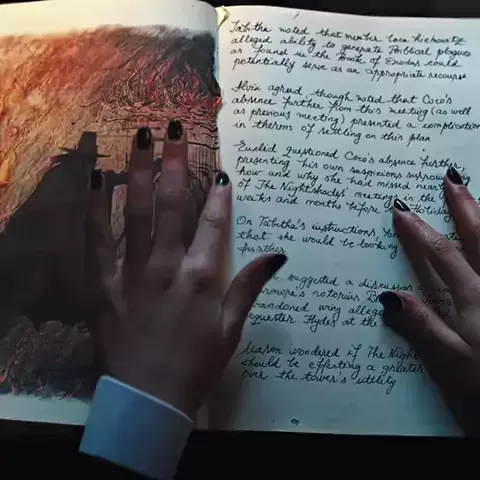 Tabitha noted that member Coco
alleged ability to generate Biblical plagues
as found in the Book of Exodus could
potentially serve as an appropriate recourse
Alvin agreed, though noted that Coco's
absence further from this meeting (as well
as previous meeting) presented a complication
in therms of settling on this plan
Euclid questioned Coco's absence further
presenting his own suspicions
how and why she had missed
of The Nightshades' meetings in the
weeks and months before
On Tabitha's instructions,
that she would be looking
further
suggested a discussion
notorius
abandoned wing
Hydes at the
wondered if The
should be effecting a greater
over the tower's utility